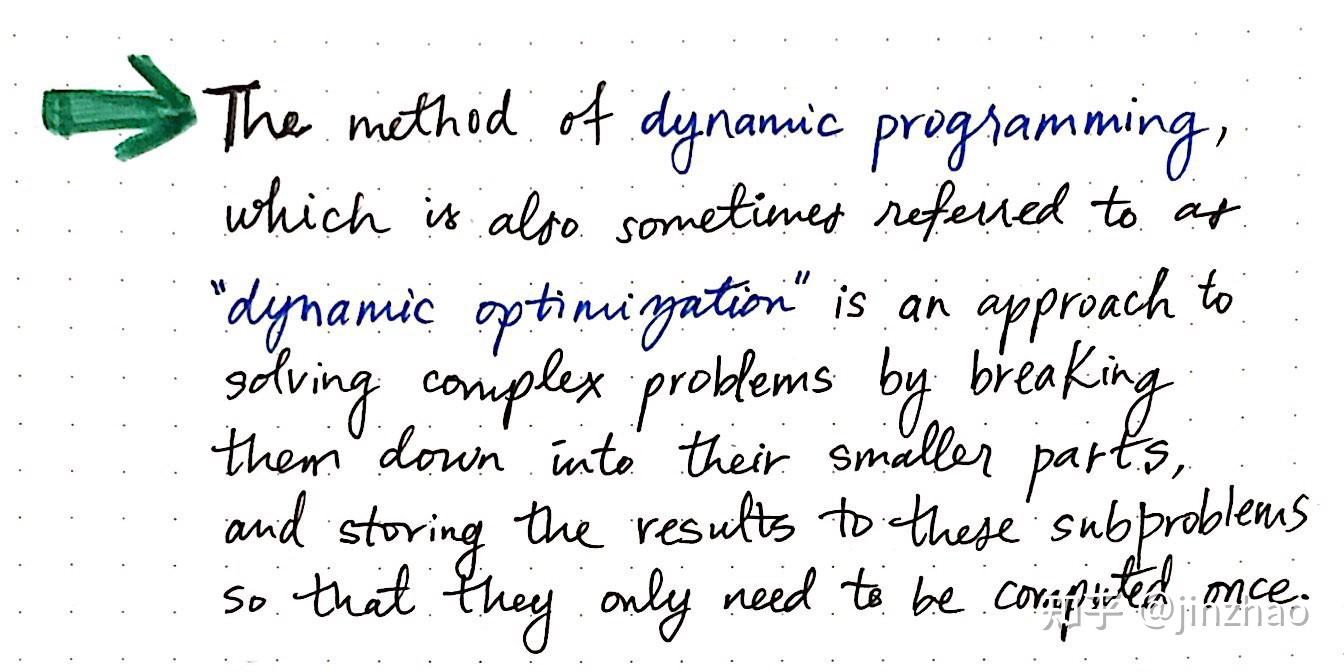 The method of dynamic programming,
which is also sometimes referred to as
"dynamic optimization" is an approach to
solving complex problems by breaking
them down into their smaller parts,
and storing the results to these subproblems
so that they only need to be computed once.
知乎 @jinzhao